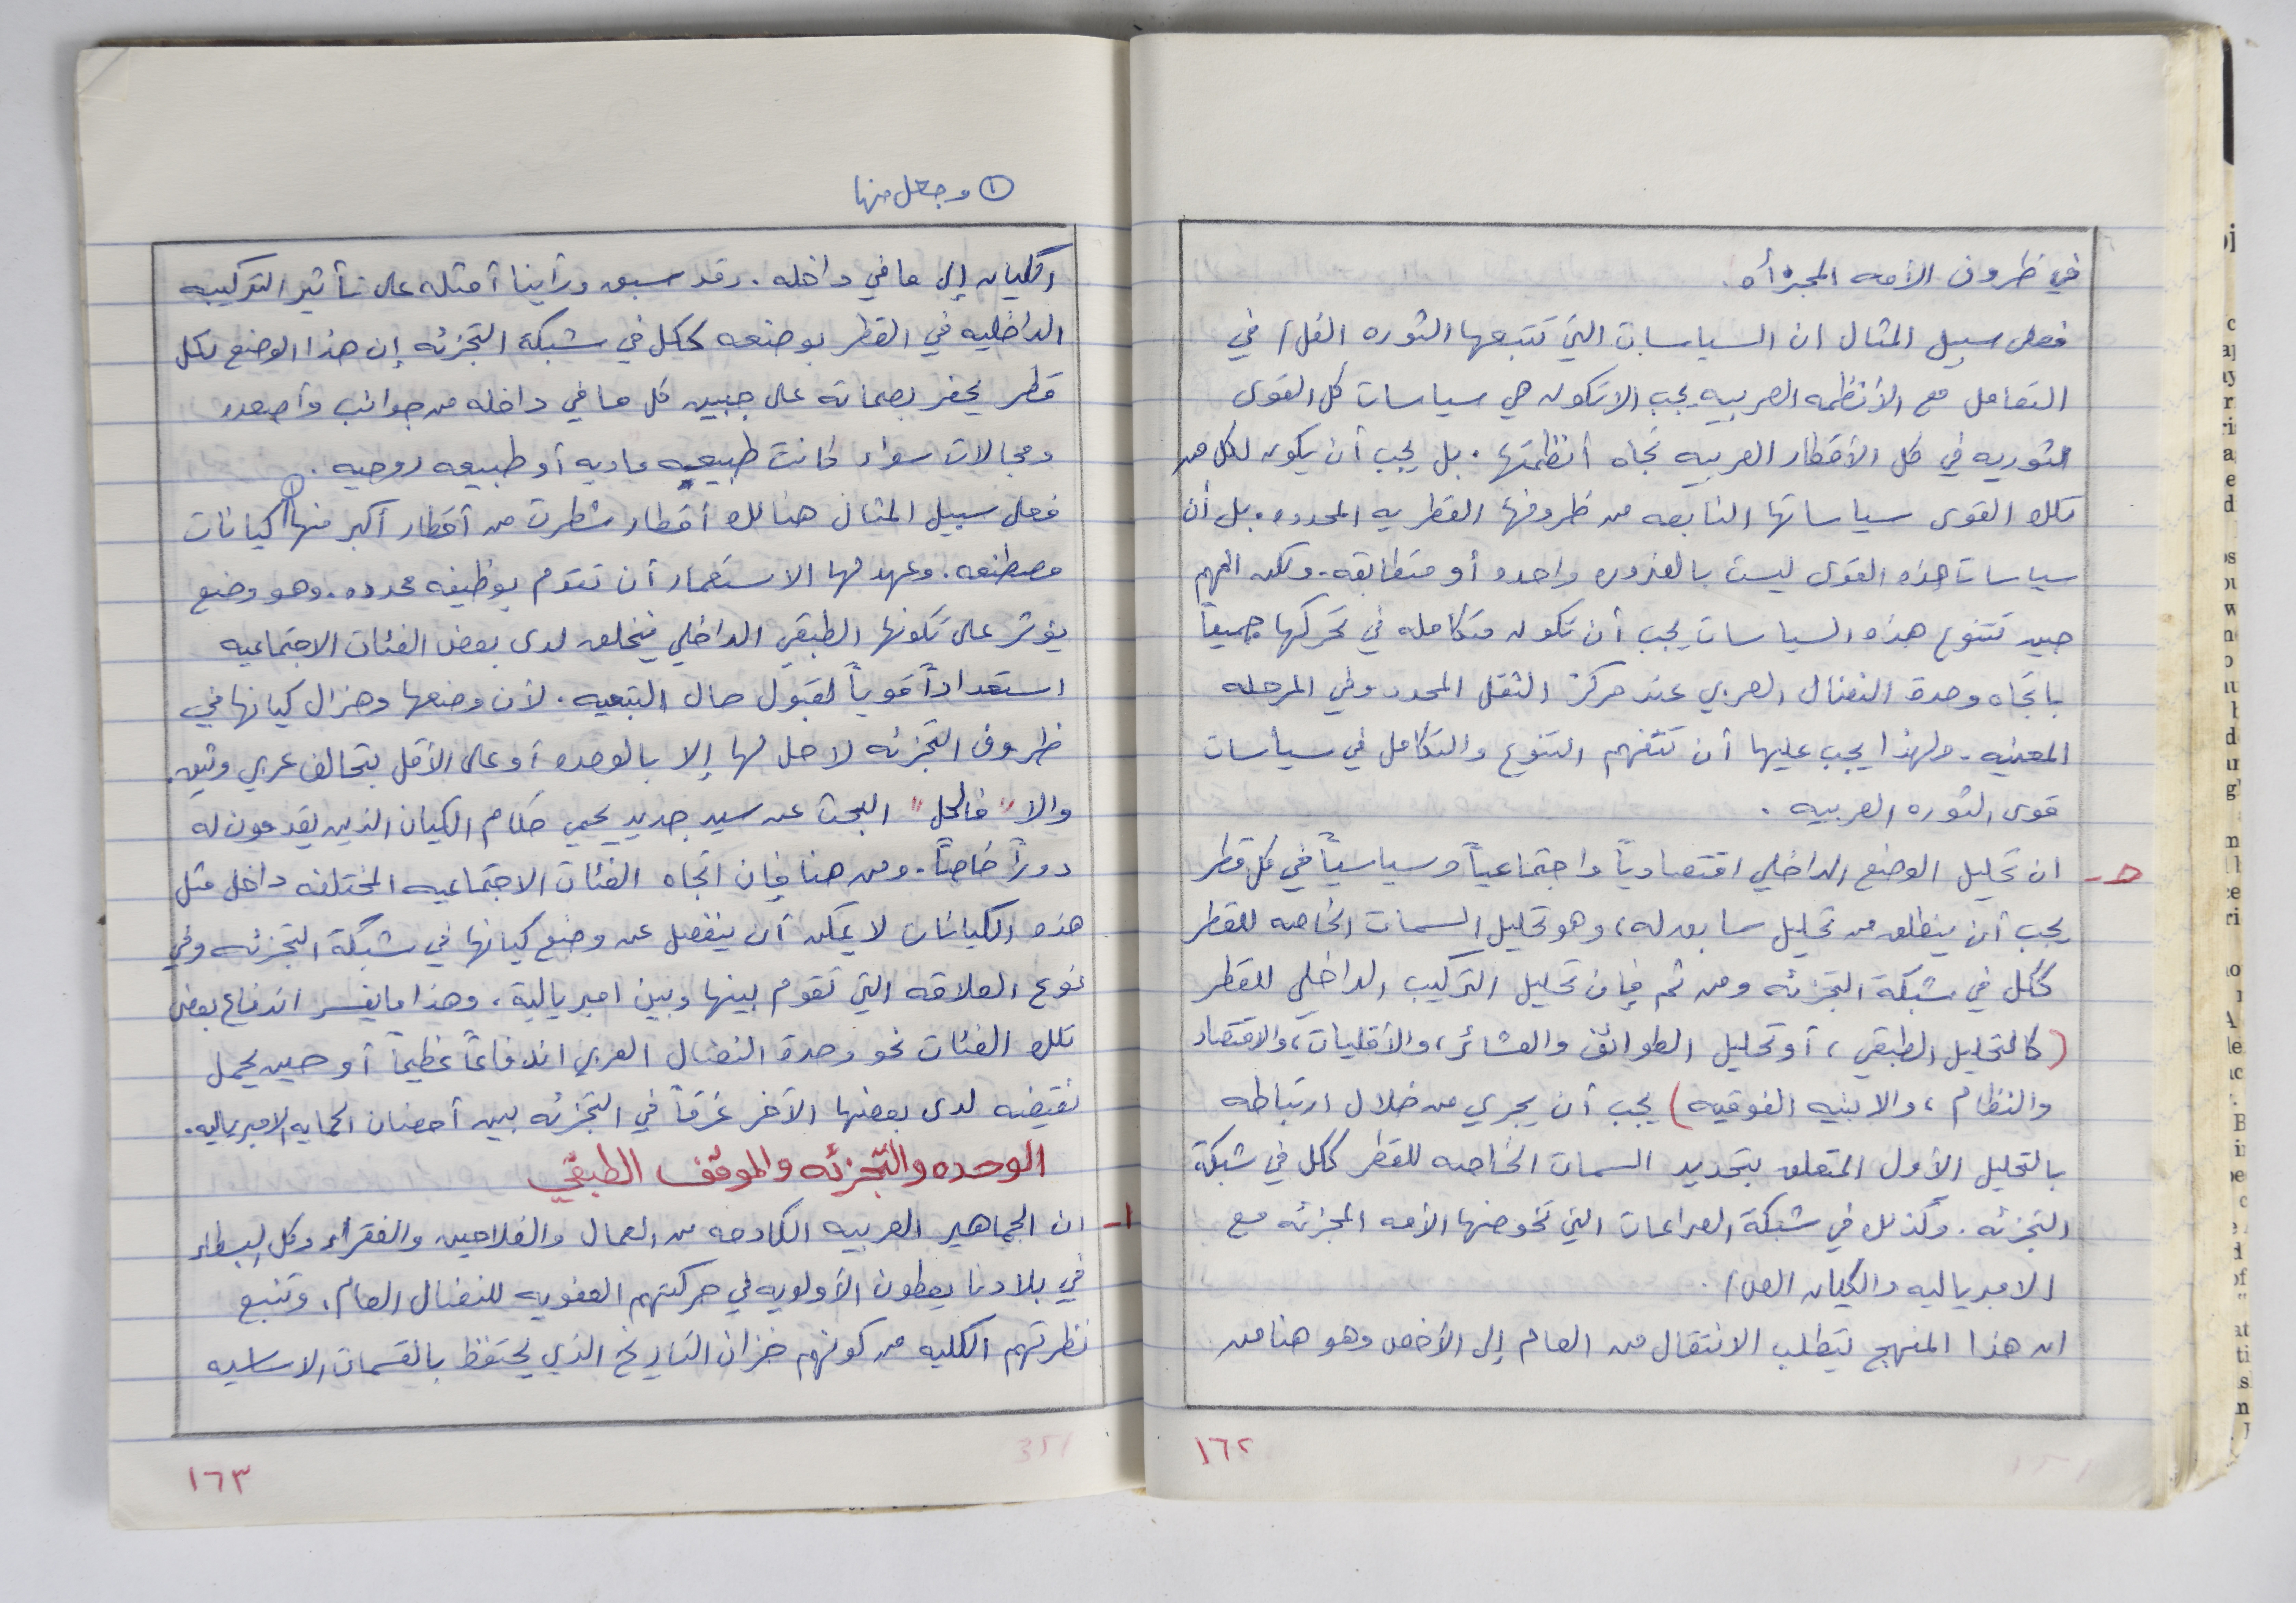 في ظروف الأمه المجزأه.
فعلى سبيل المثال ان السياسات التي تتبعها الثوره الفل/ في
التعامل مع الأنظمه العربيه يجب الا تكون هي سياسات كل القوى
الثوريه في كل الأقطار العربيه تجاه أنظمتها. بل يجب أن يكون لكل من
تلك القوى سياساتها النابعه من ظروفها القطريه المحدده. بل أن
سياسات هذه القوى ليست بالضروره واحده أو متطابقه. ولكن المهم
حين تتنوع هذه السياسات يجب أن تكون متكامله في تحركها جميعاً
باتجاه وحدة النضال العربي عند مركز الثقل المحدد وفي المرحله
المعنيه. ولهذا يجب عليها أن تتفهم التنوع والتكامل في سياسات
قوى الثوره العربيه.
حـ- ان تحليل الوضع الداخلي اقتصادياً واجتماعياً وسياسياً في كل قطر
يجب أن ينطلق من تحليل سابق له، وهو تحليل السمات الخاصه للقطر
ككل في شبكة التجزئه ومن ثم فإن تحليل التركيب الداخلي للقطر
(كالتحليل الطبقي، أو تحليل الطوائف والعشائر، والأقليات، والاقتصاد
والنظام، والابنيه الفوقيه) يجب أن يجري من خلال ارتباطه
بالتحليل الأول المتعلق بتحديد السمات الخاصه للقطر ككل في شبكة
التجزئه. وكذلك في شبكة الصراعات التي تخوضها الأمه المجزئه مع
الامبرياليه والكيان الص/.
ان هذا المنهج يتطلب الانتقال من العام إلى الأخص وهو هنا من
١٦٢
① وجعل منها
الكيان إلى ما في داخله. وقد سبق ورأينا أمثله على تأثير التركيبه
الداخليه في القطر بوضعه ككل في شبكة التجزئه إن هذا الوضع لكل
قطر يحفر بصماته على جبين كل ما في داخله من جوانب وأصعده
ومجالات سواء كانت طبيعيه ماديه أو طبيعه روحيه.
فعلى سبيل المثال هنالك أقطار شطرت من أقطار أكبر منها ① كيانات
مصطنعه. وعهد لها الاستعمار أن تقوم بوظيفه محدده. وهو وضع
يؤثر على تكونها الطبقي الداخلي فيخلق لدى بعض الفئات الاجتماعيه
استعداداً قوياً لقبول حال التبعيه. لأن وضعها وهزال كيانها في
ظروف التجزئه لا حل لها إلا بالوحده أو على الأقل بتحالف عربي وثيق.
والا "فالحل" البحث عن سيد جديد يحمي حكام الكيان الذين يقدمون له
دوراً خاصاً. ومن هنا فإن اتجاه الفئات الاجتماعيه المختلفه داخل مثل
هذه الكيانات لا يمكن أن ينفصل عن وضع كيانها في شبكة التجزئه وفي
نوع العلاقه التي تقوم بينها وبين امبريالية، وهذا ما يفسر اندفاع بعض
تلك الفئات نحو وحدة النضال العربي اندفاعاً عظيماً أو حين يحمل
نقيضه لدى بعضها الآخر غرقاً في التجزئه بين أحضان الحمايه الامبرياليه.
الوحده والتجزئه والموقف الطبقي
١- ان الجماهير العربيه الكادحه من العمال والفلاحين والفقراء وكل البسطاء
في بلادنا يعطون الأولويه في حركتهم العفويه للنضال العام، وتنبع
نظرتهم الكليه من كونهم خزان التاريخ الذي يحتفظ بالقسمات الاساسيه
١٦٣